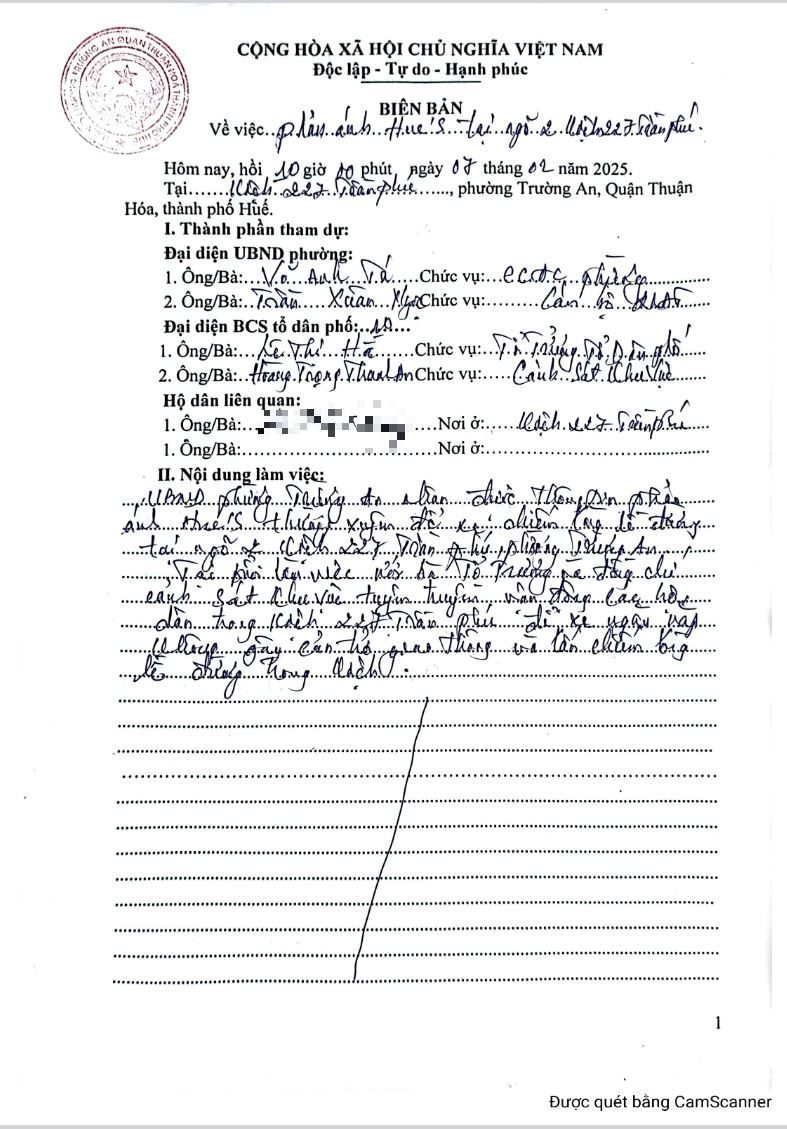 CỘNG HÒA XÃ HỘI CHỦ NGHĨA VIỆT NAM
Độc lập - Tự do - Hạnh phúc
BIÊN BẢN
Về việc..phản ánh Hue'S tại ngõ 2 Kiệt 227 Trần phú.
Hôm nay, hồi 10 giờ 00 phút, ngày 07 tháng 02 năm 2025.
Tại......Kiệt 227 Trần phú......, phường Trường An, Quận Thuận
Hóa, thành phố Huế.
I. Thành phần tham dự:
Đại diện UBND phường:
1. Ông/Bà:...Võ Anh Tú...Chức vụ:... phường
2. Ông/Bà:...Trần Xuân Chức vụ:...Cán bộ
Đại diện BCS tổ dân phố:
1. Ông/Bà:...Lê Thị Hà...Chức vụ:...Tổ Trưởng Tổ Dân phố
2. Ông/Bà:..Hoàng Trọng Thanh An Chức vụ:...Cảnh Sát Khu Vực
Hộ dân liên quan:
1. Ông/Bà: ...Nơi ở:...Kiệt 227 Trần phú
1. Ông/Bà:...Nơi ở:...
II. Nội dung làm việc:
UBND phường Trường An nhận được Thông tin phản
ánh Hue'S thường xuyên để xe chiếm lòng lề đường
tại ngõ 2 Kiệt 227 Trần phú, phường Trường An
Tại buổi làm việc với bà Tổ Trưởng và đồng chí
cảnh Sát Khu Vực tuyên truyền, vận động các hộ
dân trong Kiệt 227 Trần phú để xe ngăn nắp
không gây cản trở giao thông và lấn chiếm lòng
lề đường trong Kiệt.
1
Được quét bằng CamScanner